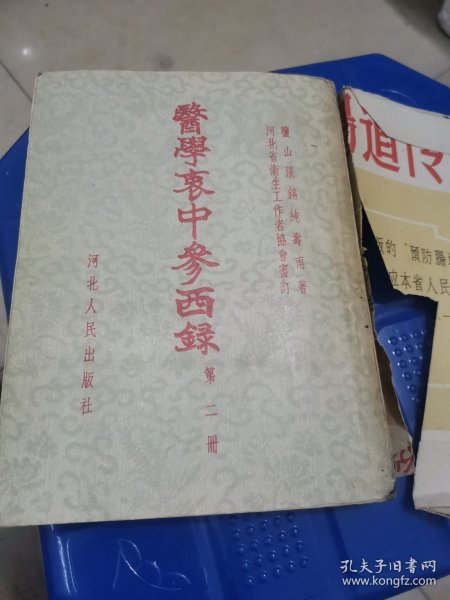 鹽山張錫純壽甫著
河北省衛生工作者協會審訂
醫學衷中參西錄
第二冊
河北人民出版社
預防腸
本省人民
孔夫子旧书网
www.kongfz.com